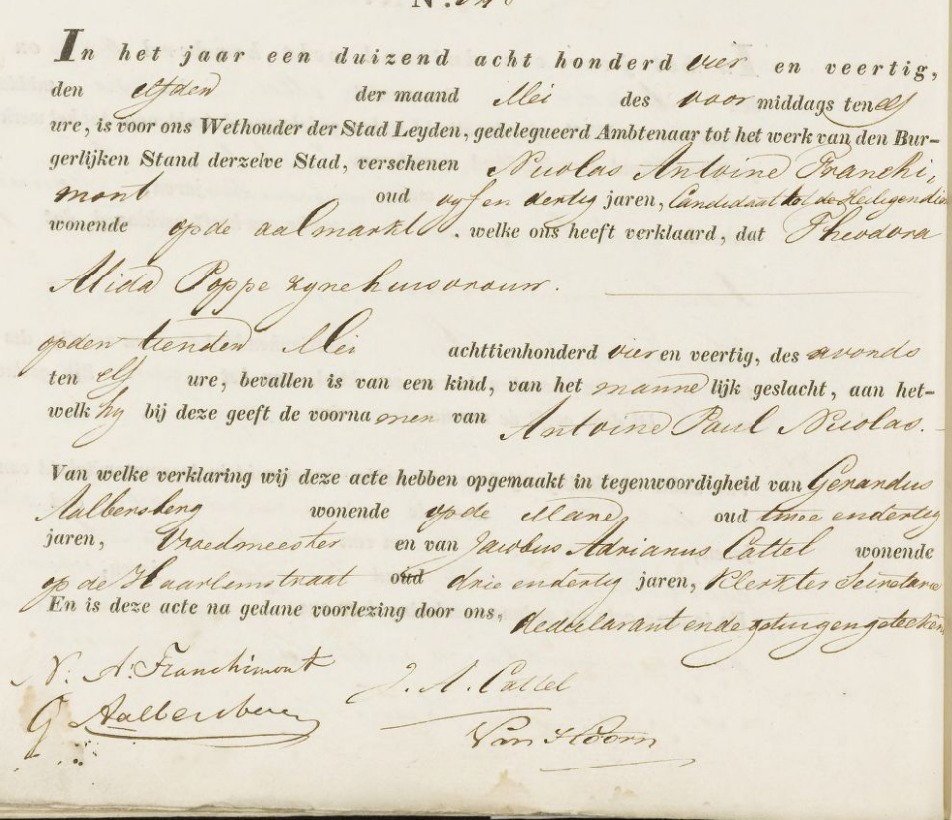 In het jaar een duizend acht honderd vier en veertig,
den elfden der maand Mei des voor middags ten elf
ure, is voor ons Wethouder der Stad Leyden, gedelegueerd Ambtenaar tot het werk van den Bur-
gerlijken Stand derzelve Stad, verschenen Nicolas Antoine Franchi-
mont oud vyf en dertig jaren, Candidaat tot de Heiligendienst
wonende op de aalmarkt . welke ons heeft verklaard, dat Theodora
Alida Poppe zyne huisvrouw.
op den tienden Mei achttienhonderd vier en veertig, des avonds
ten elf ure, bevallen is van een kind, van het manne lijk geslacht, aan het-
welk hy bij deze geeft de voorna men van Antoine Paul Nicolas.
Van welke verklaring wij deze acte hebben opgemaakt in tegenwoordigheid van Gerardus
Aalbersberg wonende op de Mare oud twee en dertig
jaren, Vroedmeester en van Jacobus Adrianus Cattel wonende
op de Haarlemstraat oud drie en dertig jaren, Klerk ter Secretarie
En is deze acte na gedane voorlezing door ons, de declarant en de getuigen geteekend
N. A. Franchimont
J. A. Cattel
G Aalbersberg
Van Hoorn